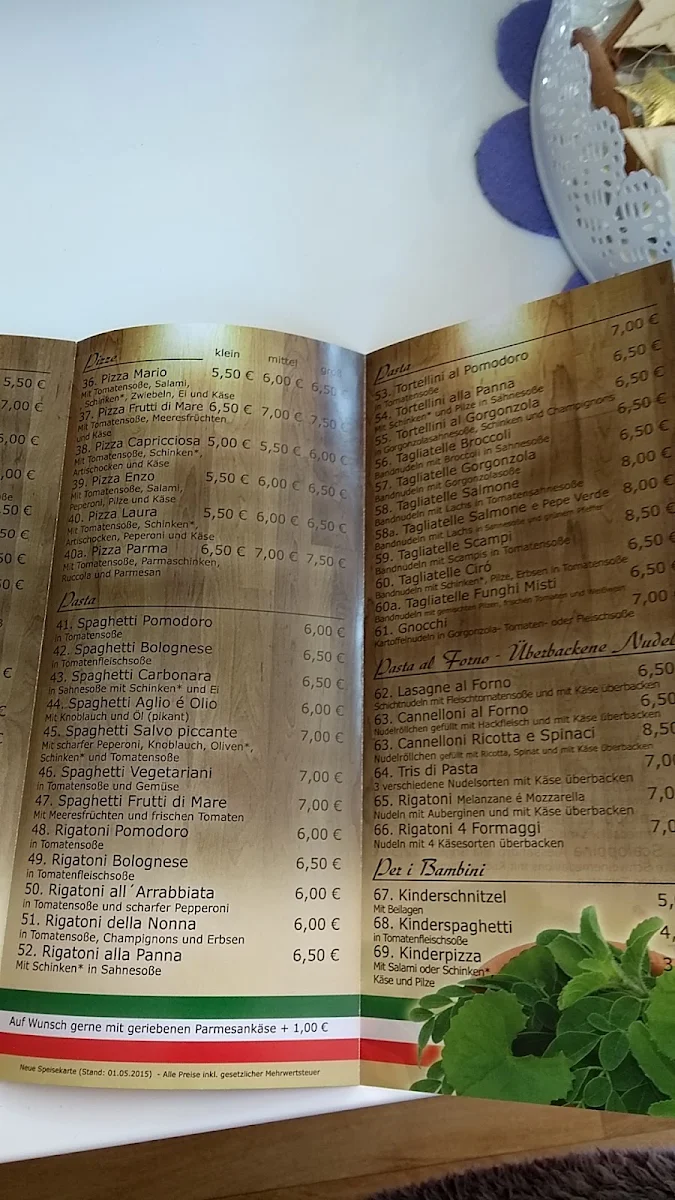 5,50 €
7,00 €
5,00 €
,00 €
,50 €
50 €
50 €
0 €
€
Pizze klein mittel groß
36. Pizza Mario 5,50 € 6,00 € 6,50
Mit Tomatensoße, Salami,
Schinken*, Zwiebeln, Ei und Käse
37. Pizza Frutti di Mare 6,50 € 7,00 € 7,50 €
Mit Tomatensoße, Meeresfrüchten
und Käse
38. Pizza Capricciosa 5,00 € 5,50 € 6,00 €
Mit Tomatensoße, Schinken*,
Artischocken und Käse
39. Pizza Enzo 5,50 € 6,00 € 6,50 €
Mit Tomatensoße, Salami,
Peperoni, Pilze und Käse
40. Pizza Laura 5,50 € 6,00 € 6,50 €
Mit Tomatensoße, Schinken*,
Artischocken, Peperoni und Käse
40a. Pizza Parma 6,50 € 7,00 € 7,50 €
Mit Tomatensoße, Parmaschinken,
Ruccola und Parmesan
Pasta
41. Spaghetti Pomodoro 6,00 €
in Tomatensoße
42. Spaghetti Bolognese 6,50 €
in Tomatenfleischsoße
43. Spaghetti Carbonara 6,50 €
in Sahnesoße mit Schinken* und Ei
44. Spaghetti Aglio é Olio 6,00 €
Mit Knoblauch und Öl (pikant)
45. Spaghetti Salvo piccante 7,00 €
Mit scharfer Peperoni, Knoblauch, Oliven*,
Schinken* und Tomatensoße
46. Spaghetti Vegetariani 7,00 €
in Tomatensoße und Gemüse
47. Spaghetti Frutti di Mare 7,00 €
Mit Meeresfrüchten und frischen Tomaten
48. Rigatoni Pomodoro 6,00 €
in Tomatensoße
49. Rigatoni Bolognese 6,50 €
in Tomatenfleischsoße
50. Rigatoni all´Arrabbiata 6,00 €
in Tomatensoße und scharfer Pepperoni
51. Rigatoni della Nonna 6,00 €
in Tomatensoße, Champignons und Erbsen
52. Rigatoni alla Panna 6,50 €
Mit Schinken* in Sahnesoße
Auf Wunsch gerne mit geriebenen Parmesankäse + 1,00 €
Neue Speisekarte (Stand: 01.05.2015) - Alle Preise inkl. gesetzlicher Mehrwertsteuer
Pasta
53. Tortellini al Pomodoro 7,00 €
in Tomatensoße
54. Tortellini alla Panna 6,50 €
Mit Schinken* und Pilze in Sahnesoße
55. Tortellini al Gorgonzola 6,50 €
in Gorgonzolasahnesoße, Schinken und Champignons
56. Tagliatelle Broccoli 6,50 €
Bandnudeln mit Broccoli in Sahnesoße
57. Tagliatelle Gorgonzola 6,50 €
Bandnudeln mit Gorgonzolasoße
58. Tagliatelle Salmone 8,00 €
Bandnudeln mit Lachs in Tomatensahnesoße
58a. Tagliatelle Salmone e Pepe Verde 8,00 €
Bandnudeln mit Lachs in Sahnesoße und grünem Pfeffer
59. Tagliatelle Scampi 8,50 €
Bandnudeln mit Scampis in Tomatensoße
60. Tagliatelle Ciró 6,50 €
Bandnudeln mit Schinken*, Pilze, Erbsen in Tomatensoße
60a. Tagliatelle Funghi Misti 6,50
Bandnudeln mit gemischten Pilzen, frischen Tomaten und Weißwein
61. Gnocchi 7,00
Kartoffelnudeln in Gorgonzola- Tomaten- oder Fleischsoße
Pasta al Forno - Überbackene Nudel
62. Lasagne al Forno 6,50
Schichtnudeln mit Fleischtomatensoße und mit Käse überbacken
63. Cannelloni al Forno 6,50
Nudelröllchen gefüllt mit Hackfleisch und mit Käse überbacken
63. Cannelloni Ricotta e Spinaci 8,50
Nudelröllchen gefüllt mit Ricotta, Spinat und mit Käse überbacken
64. Tris di Pasta 7,0
3 verschiedene Nudelsorten mit Käse überbacken
65. Rigatoni Melanzane é Mozzarella 7,0
Nudeln mit Auberginen und mit Käse überbacken
66. Rigatoni 4 Formaggi 7,0
Nudeln mit 4 Käsesorten überbacken
Per i Bambini
67. Kinderschnitzel 5,
Mit Beilagen
68. Kinderspaghetti 4,
in Tomatenfleischsoße
69. Kinderpizza 3
Mit Salami oder Schinken*,
Käse und Pilze